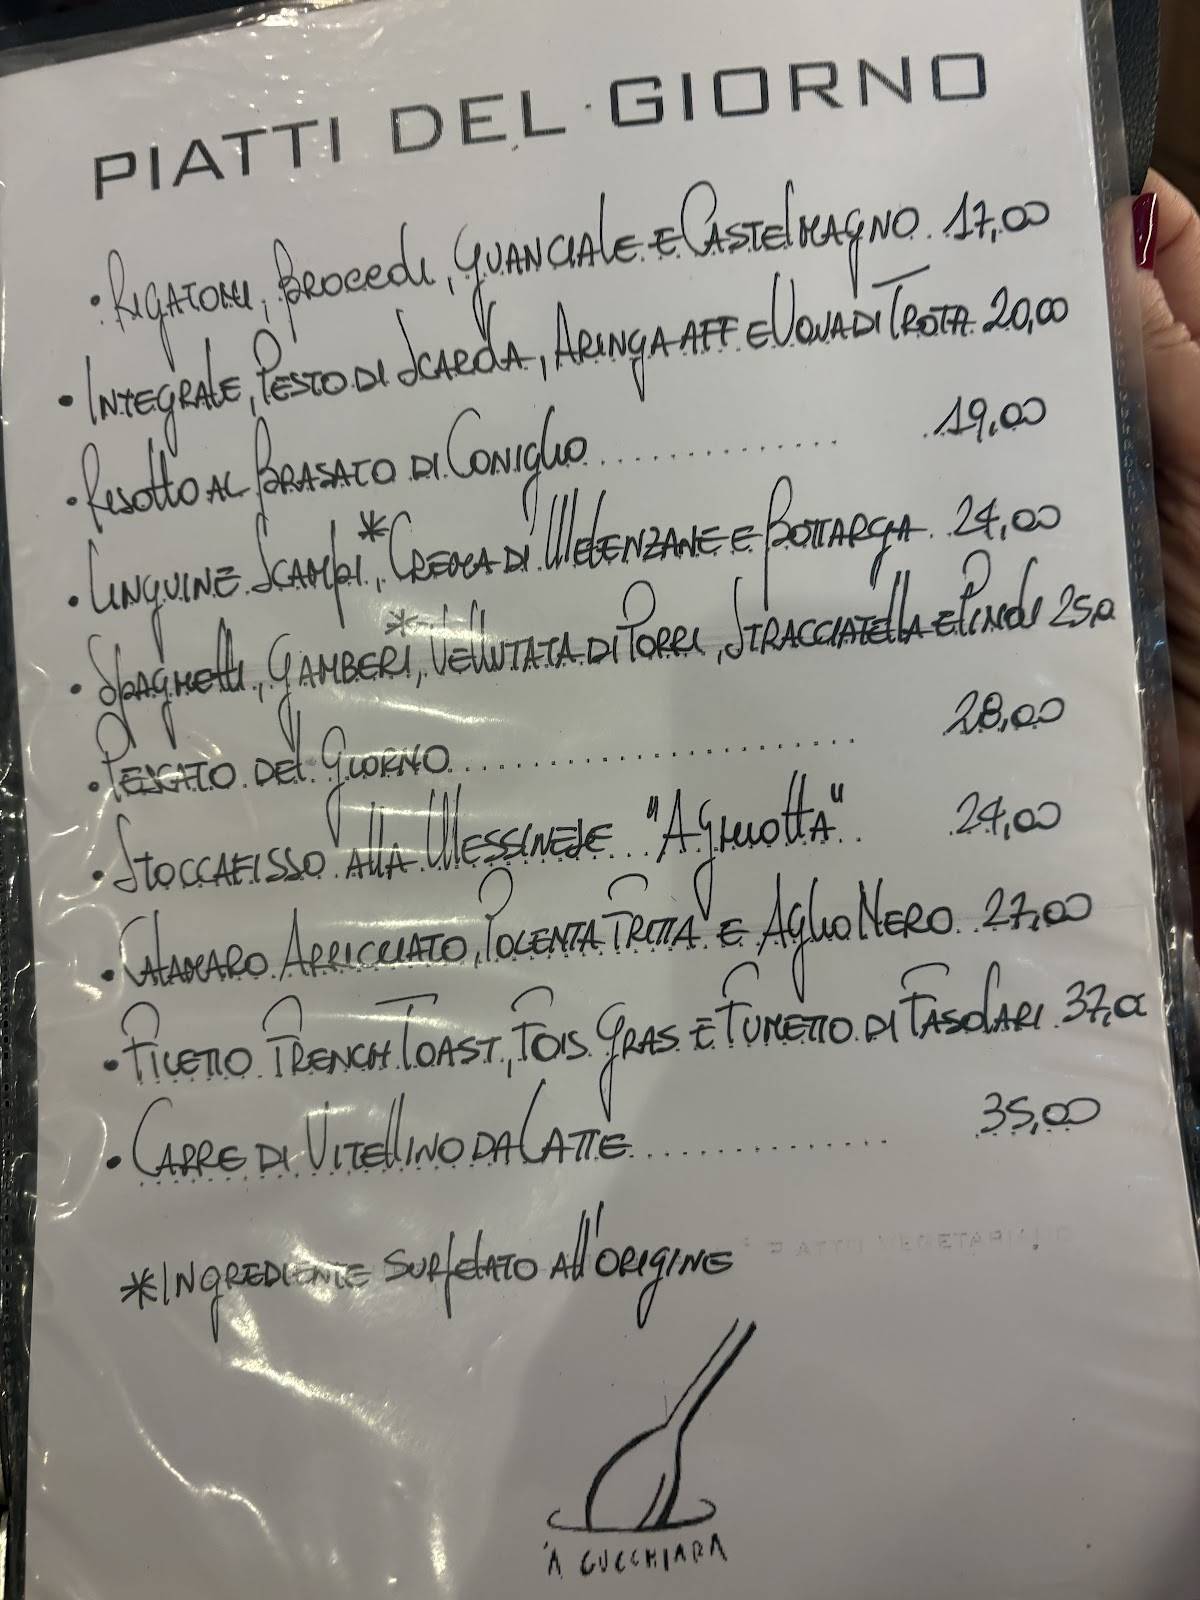 PIATTI DEL GIORNO
• RIGATONI, BROCCOLI, GUANCIALE E CASTELMAGNO. 17,00
• INTEGRALE, PESTO DI SCAROLA, ARINGA AFF E UOVA DI TROTA 20,00
• RISOTTO AL BRASATO DI CONIGLIO 19,00
• LINGUINE SCAMPI*, CREMA DI MELENZANE E BOTTARGA 24,00
• SPAGHETTI, GAMBERI*, VELLUTATA DI PORRI, STRACCIATELLA E PINOLI 25,00
• PESCATO DEL GIORNO 28,00
• STOCCAFISSO ALLA MESSINESE "AGHIOTTA" 24,00
• CALAMARO ARRICCIATO, POLENTA FRITTA E AGLIO NERO 27,00
• FILETTO FRENCH TOAST, FOIS GRAS E FUMETTO DI FASOLARI 37,00
• CARRE DI VITELLINO DA LATTE 35,00
*INGREDIENTE SURGELATO ALL'ORIGINE
'A CUCCHIARA